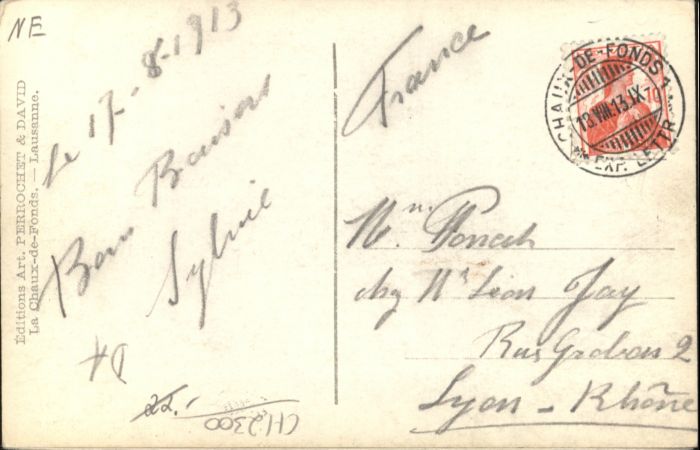 NE
Le 17-8-1913
Bons Baisers
Sylvie
Éditions Art. PERROCHET & DAVID
La Chaux-de-Fonds. — Lausanne.
22.-
CH2300
France
CHAUX-DE-FONDS 1
18.VIII.13.IX
EXP. LETTR.
10
Mn.
chez Mr Léon Jay
Rue 2
Lyon - Rhône